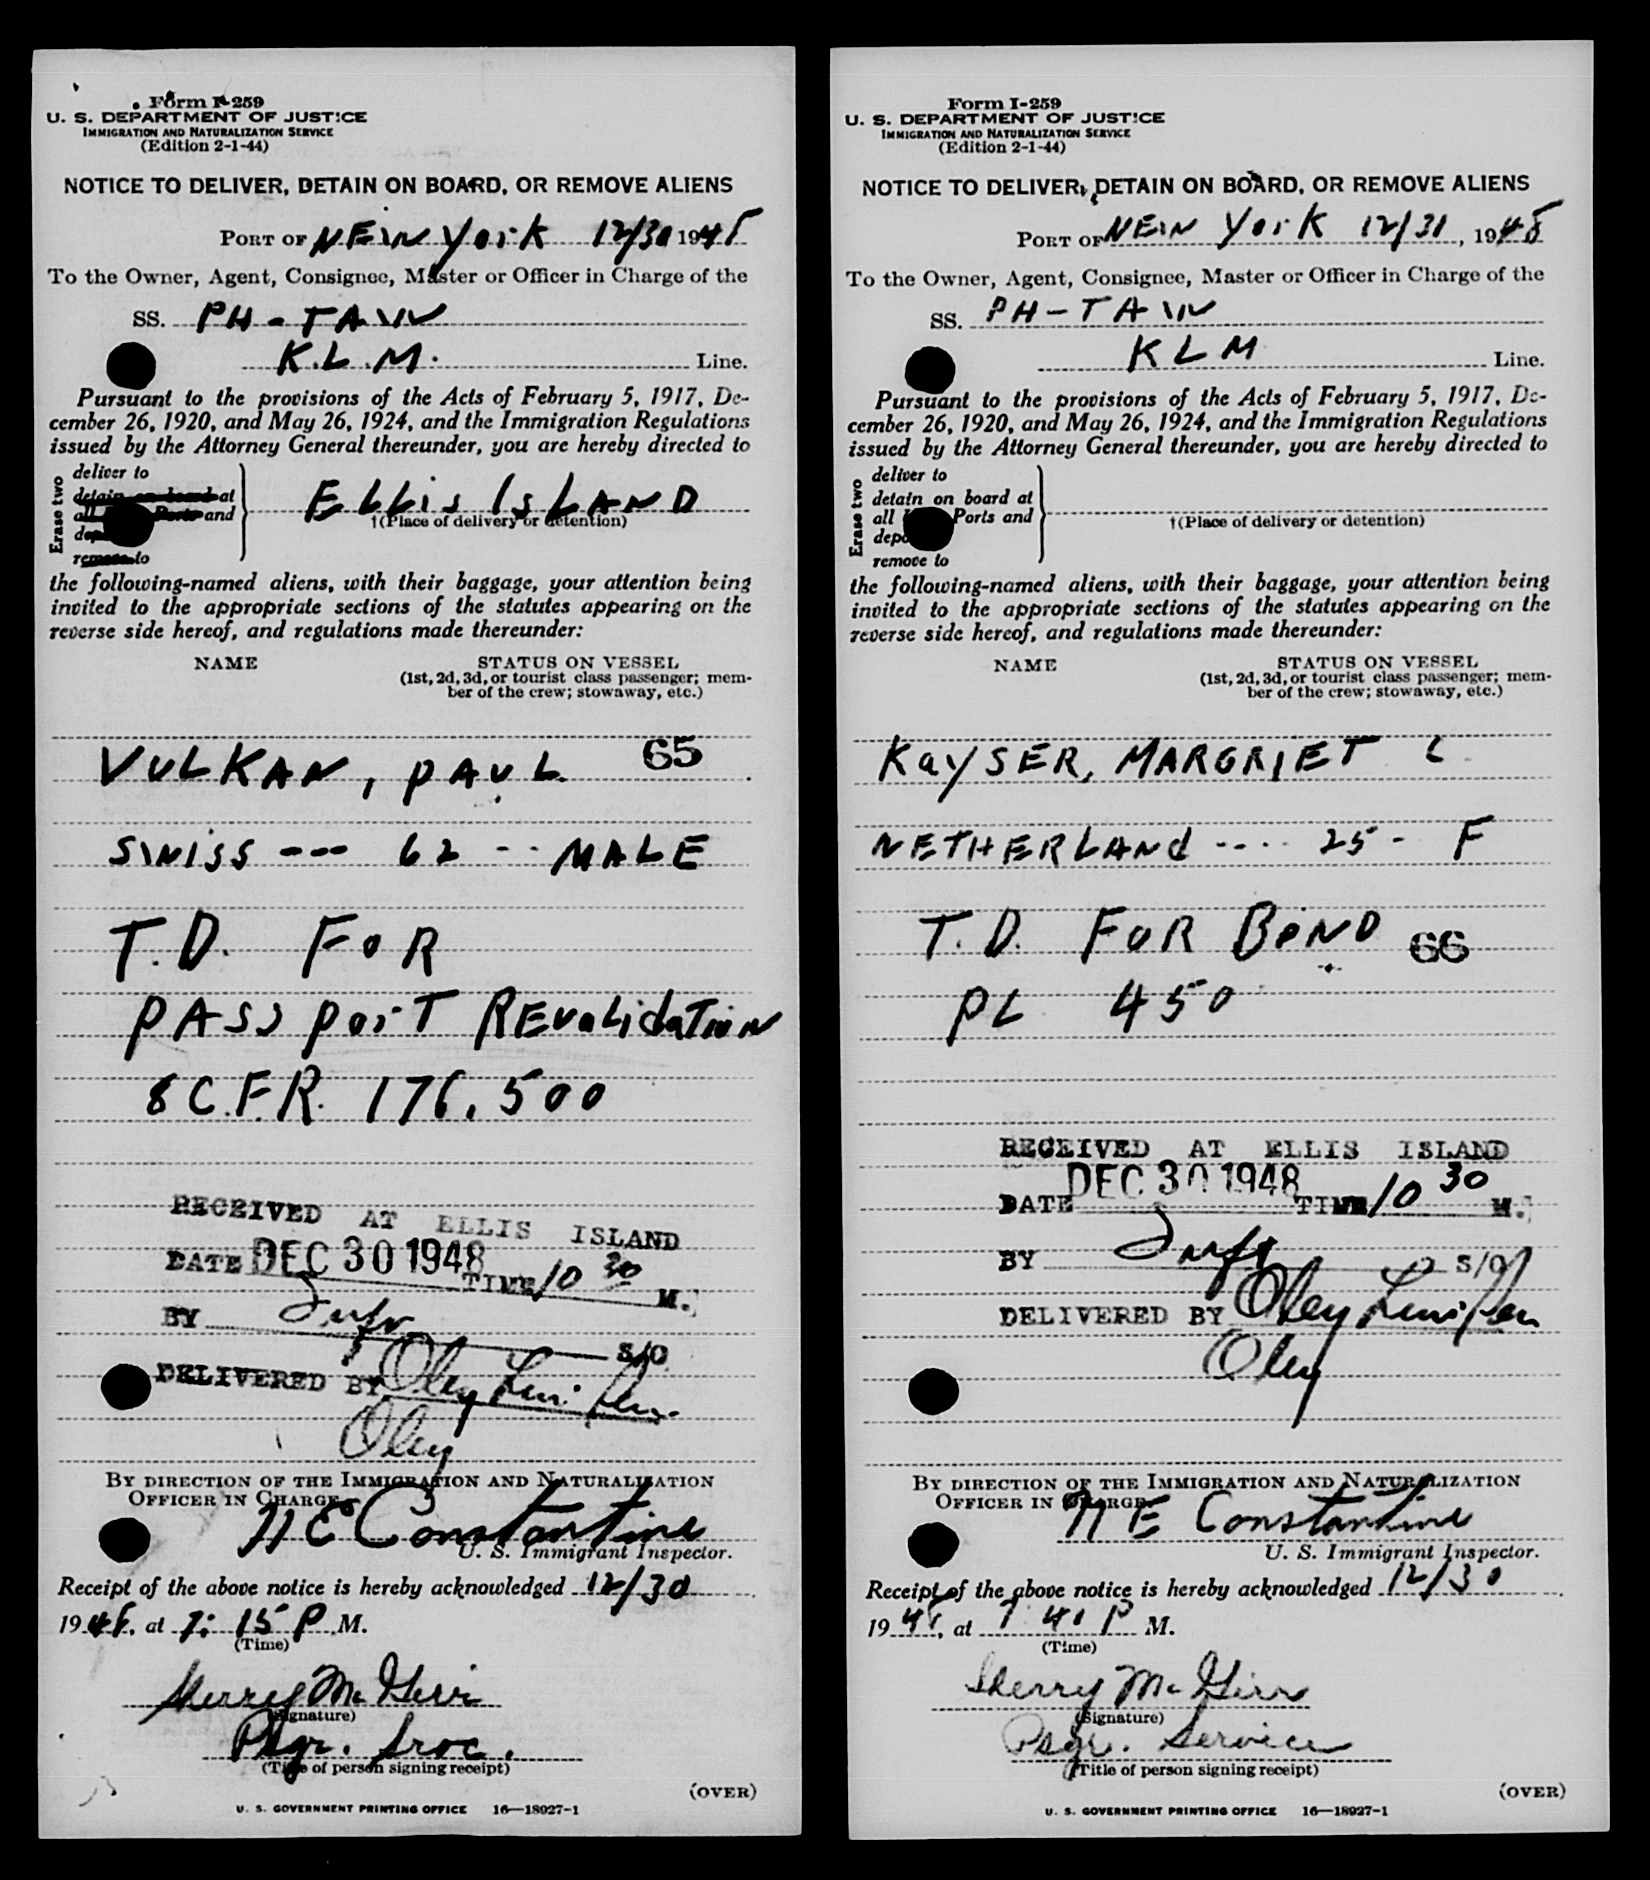 Form I-259
U. S. DEPARTMENT OF JUSTICE
IMMIGRATION AND NATURALIZATION SERVICE
(Edition 2-1-44)
NOTICE TO DELIVER, DETAIN ON BOARD, OR REMOVE ALIENS
PORT OF NEW York 12/30 1948
To the Owner, Agent, Consignee, Master or Officer in Charge of the
SS. PH-TAW
K.L.M. Line.
Pursuant to the provisions of the Acts of February 5, 1917, De-
cember 26, 1920, and May 26, 1924, and the Immigration Regulations
issued by the Attorney General thereunder, you are hereby directed to
Erase two
deliver to
detain on board at
all Ports and
remove to
ELLis IsLAND
†(Place of delivery or detention)
the following-named aliens, with their baggage, your attention being
invited to the appropriate sections of the statutes appearing on the
reverse side hereof, and regulations made thereunder:
NAME STATUS ON VESSEL
(1st, 2d, 3d, or tourist class passenger; mem-
ber of the crew; stowaway, etc.)
VULKAN, PAUL 65
SWISS --- 62 -- MALE
T.D. FOR
PASSport REvalidation
8 C.F.R. 176.500
RECEIVED AT ELLIS ISLAND
DATE DEC 30 1948 TIME 10 30 M.
BY S/O
DELIVERED BY Oley
Oley
BY DIRECTION OF THE IMMIGRATION AND NATURALIZATION
OFFICER IN CHARGE.
N E Constantine
U. S. Immigrant Inspector.
Receipt of the above notice is hereby acknowledged 12/30
1948, at 7:15 P.M.
(Time)
Sherry McGirr
(Signature)
Psgr. Srvc.
(Title of person signing receipt)
(OVER)
U. S. GOVERNMENT PRINTING OFFICE 16—18027-1
Form I-259
U. S. DEPARTMENT OF JUSTICE
IMMIGRATION AND NATURALIZATION SERVICE
(Edition 2-1-44)
NOTICE TO DELIVER, DETAIN ON BOARD, OR REMOVE ALIENS
PORT OF NEW York 12/31, 1948
To the Owner, Agent, Consignee, Master or Officer in Charge of the
SS. PH-TAW
KLM Line.
Pursuant to the provisions of the Acts of February 5, 1917, De-
cember 26, 1920, and May 26, 1924, and the Immigration Regulations
issued by the Attorney General thereunder, you are hereby directed to
Erase two
deliver to
detain on board at
all Ports and
remove to
†(Place of delivery or detention)
the following-named aliens, with their baggage, your attention being
invited to the appropriate sections of the statutes appearing on the
reverse side hereof, and regulations made thereunder:
NAME STATUS ON VESSEL
(1st, 2d, 3d, or tourist class passenger; mem-
ber of the crew; stowaway, etc.)
KaySER, MARGRIET C
NETHERLANd ---- 25 - F
T.D. FOR BOND 66
PL 450
RECEIVED AT ELLIS ISLAND
DATE DEC 30 1948 TIME 10 30 M.
BY S/O
DELIVERED BY Oley
Oley
BY DIRECTION OF THE IMMIGRATION AND NATURALIZATION
OFFICER IN CHARGE.
N E Constantine
U. S. Immigrant Inspector.
Receipt of the above notice is hereby acknowledged 12/30
1948, at 7 41 P M.
(Time)
Sherry McGirr
(Signature)
Psgr. Service
(Title of person signing receipt)
(OVER)
U. S. GOVERNMENT PRINTING OFFICE 16—18027-1